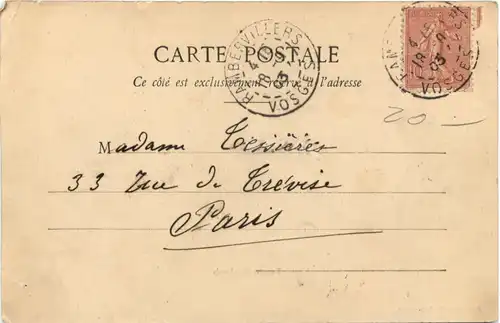 CARTE POSTALE
Ce côté est exclusivement réservé à l'adresse
RAMBERVILLERS
18
03
VOSGES
18
03
VOSGES
20 —
Madame Tessières
33 Rue de Trévise
Paris